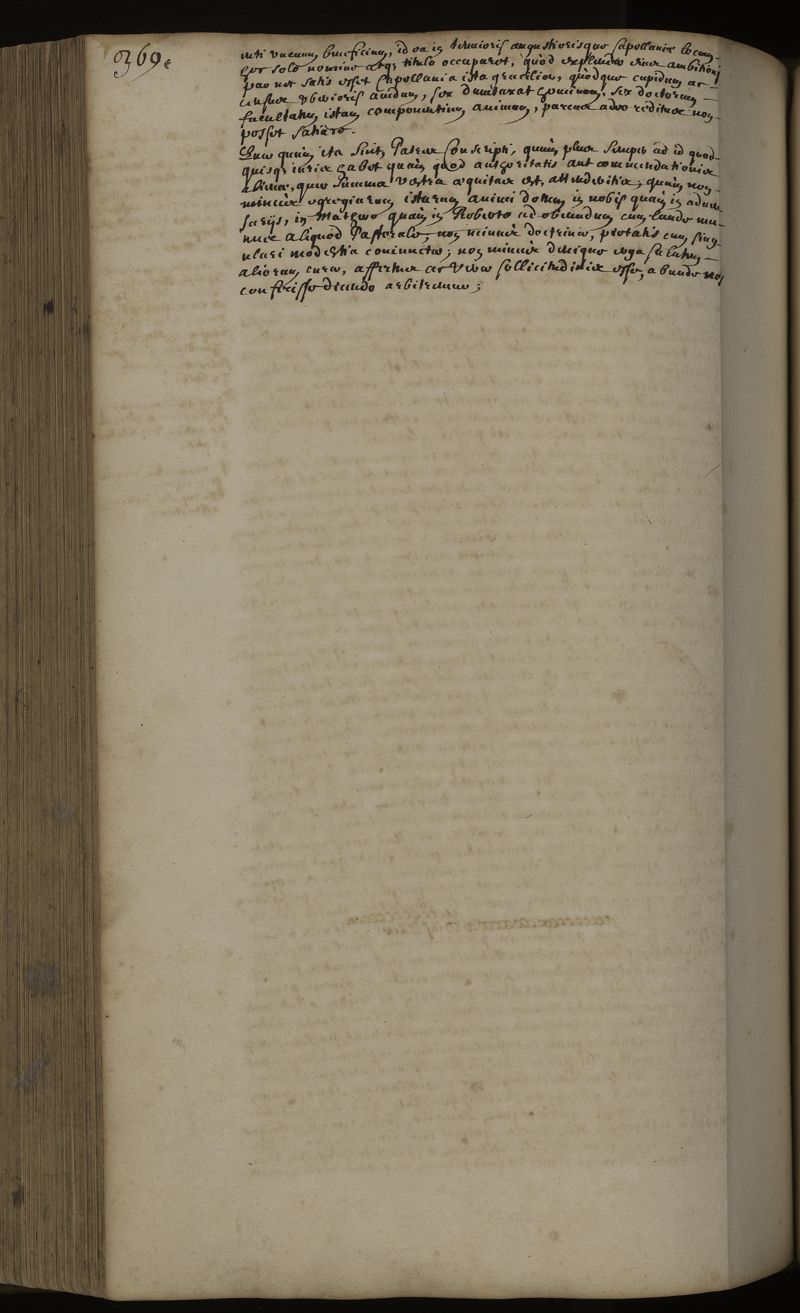 369.
uti vacuum beneficium, id ea in tenuioris angustiorisque Capellaniæ locum,
hoc solo nomine atque titulo occuparet, quod explendæ eius ambitioni
par nec satis esset Capellania ista gracilior, quodque cupidum ac
census uberioris avidum, sed duntaxat hominem, sed doctorem
facultatum istam componentium animam, parcus adeo reditus non
posset satiare.
Quæ quum ita sint, Patres Conscripti, quum plus semper ad id quod
quisque iuris habet quam quod authoritatis aut commendationis
, quæ summa vestra æquitas est, attendetis; quum non
minus egregiarum istarum animi dotum in nobis quam in adver
sarijs, in Matheo quam in Roberto ad obeundum cum laude mu
nus aliquod Pastorale, non minus doctrinæ, pietatis cum sing
ulari modestia coniunctæ; non minus denique erga salutem
aliorum curæ, affectus ac veræ sollicitudinis esse, abunde nos
confecisse dicendo arbitremur;